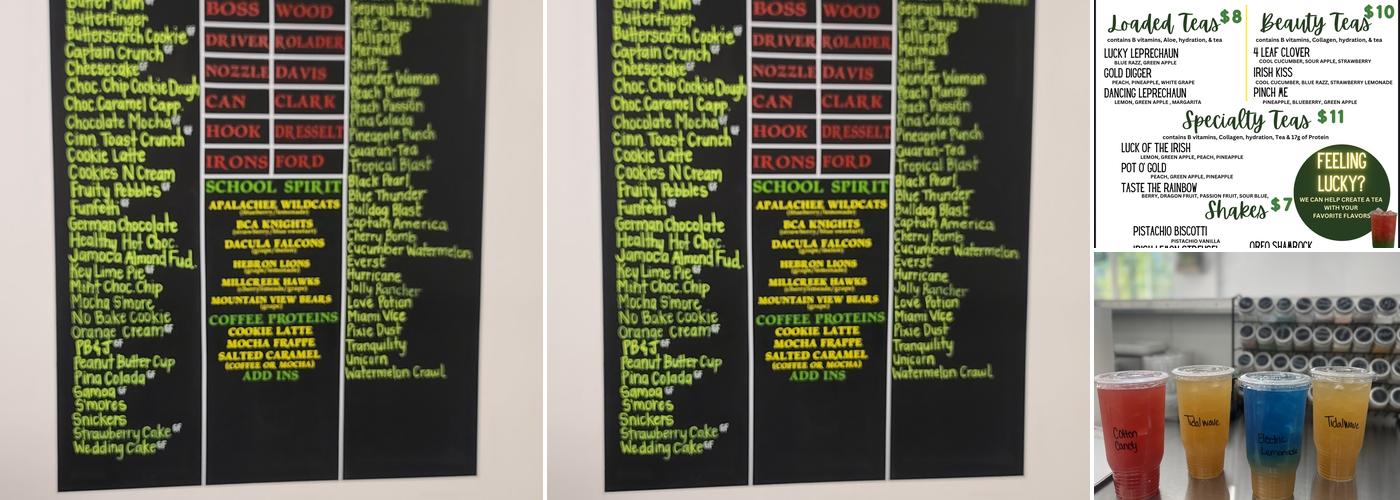 Butter Rum
Butterfinger
Butterscotch Cookie GF
Captain Crunch GF
Cheesecake GF
Choc. Chip Cookie Dough
Choc. Caramel Capp.
Chocolate Mocha GF
Cinn. Toast Crunch
Cookie Latte
Cookies N Cream
Fruity Pebbles GF
Funfetti GF
German Chocolate
Healthy Hot Choc.
Jamoca Almond Fud.
Key Lime Pie GF
Mint Choc. Chip
Mocha S'more
No Bake Cookie
Orange Cream GF
PB&J GF
Peanut Butter Cup
Pina Colada GF
Samoa GF
S'mores
Snickers
Strawberry Cake GF
Wedding Cake GF
BOSS WOOD
DRIVER ROLADER
NOZZLE DAVIS
CAN CLARK
HOOK DRESSELT
IRONS FORD
SCHOOL SPIRIT
APALACHEE WILDCATS
(blueberry/lemonade)
BCA KNIGHTS
(strawberry/blue sweetart)
DACULA FALCONS
(orange/grape)
HEBRON LIONS
(grape/lemonade)
MILLCREEK HAWKS
(cherrylimeade/grape)
MOUNTAIN VIEW BEARS
(grape)
COFFEE PROTEINS
COOKIE LATTE
MOCHA FRAPPE
SALTED CARAMEL
(COFFEE OR MOCHA)
ADD INS
Georgia Peach
Lake Days
Lollipop
Mermaid
Skittlz
Wonder Woman
Peach Mango
Peach Passion
Pina Colada
Pineapple Punch
Guaran-Tea
Tropical Blast
Black Pearl
Blue Thunder
Bulldog Blast
Captain America
Cherry Bomb
Cucumber Watermelon
Everst
Hurricane
Jolly Rancher
Love Potion
Miami Vice
Pixie Dust
Tranquility
Unicorn
Watermelon Crawl
Butter Rum
Butterfinger
Butterscotch Cookie GF
Captain Crunch GF
Cheesecake GF
Choc. Chip Cookie Dough
Choc. Caramel Capp.
Chocolate Mocha GF
Cinn. Toast Crunch
Cookie Latte
Cookies N Cream
Fruity Pebbles GF
Funfetti GF
German Chocolate
Healthy Hot Choc.
Jamoca Almond Fud.
Key Lime Pie GF
Mint Choc. Chip
Mocha S'more
No Bake Cookie
Orange Cream GF
PB&J GF
Peanut Butter Cup
Pina Colada GF
Samoa GF
S'mores
Snickers
Strawberry Cake GF
Wedding Cake GF
BOSS WOOD
DRIVER ROLADER
NOZZLE DAVIS
CAN CLARK
HOOK DRESSELT
IRONS FORD
SCHOOL SPIRIT
APALACHEE WILDCATS
(blueberry/lemonade)
BCA KNIGHTS
(strawberry/blue sweetart)
DACULA FALCONS
(orange/grape)
HEBRON LIONS
(grape/lemonade)
MILLCREEK HAWKS
(cherrylimeade/grape)
MOUNTAIN VIEW BEARS
(grape)
COFFEE PROTEINS
COOKIE LATTE
MOCHA FRAPPE
SALTED CARAMEL
(COFFEE OR MOCHA)
ADD INS
Georgia Peach
Lake Days
Lollipop
Mermaid
Skittlz
Wonder Woman
Peach Mango
Peach Passion
Pina Colada
Pineapple Punch
Guaran-Tea
Tropical Blast
Black Pearl
Blue Thunder
Bulldog Blast
Captain America
Cherry Bomb
Cucumber Watermelon
Everst
Hurricane
Jolly Rancher
Love Potion
Miami Vice
Pixie Dust
Tranquility
Unicorn
Watermelon Crawl
Loaded Teas $8
contains B vitamins, Aloe, hydration, & tea
LUCKY LEPRECHAUN
BLUE RAZZ, GREEN APPLE
GOLD DIGGER
PEACH, PINEAPPLE, WHITE GRAPE
DANCING LEPRECHAUN
LEMON, GREEN APPLE, MARGARITA
Beauty Teas $10
contains B vitamins, Collagen, hydration, & tea
4 LEAF CLOVER
COOL CUCUMBER, SOUR APPLE, STRAWBERRY
IRISH KISS
COOL CUCUMBER, BLUE RAZZ, STRAWBERRY LEMONADE
PINCH ME
PINEAPPLE, BLUEBERRY, GREEN APPLE
Specialty Teas $11
contains B vitamins, Collagen, hydration, Tea & 17g of Protein
LUCK OF THE IRISH
LEMON, GREEN APPLE, PEACH, PINEAPPLE
POT O' GOLD
PEACH, GREEN APPLE, PINEAPPLE
TASTE THE RAINBOW
BERRY, DRAGON FRUIT, PASSION FRUIT, SOUR BLUE,
FEELING
LUCKY?
WE CAN HELP CREATE A TEA
WITH YOUR
FAVORITE FLAVORS
Shakes $7
PISTACHIO BISCOTTI
PISTACHIO VANILLA
OREO SHAMROCK
Cotton
Candy
Tidalwave
Electric
Lemonade
Tidalwave